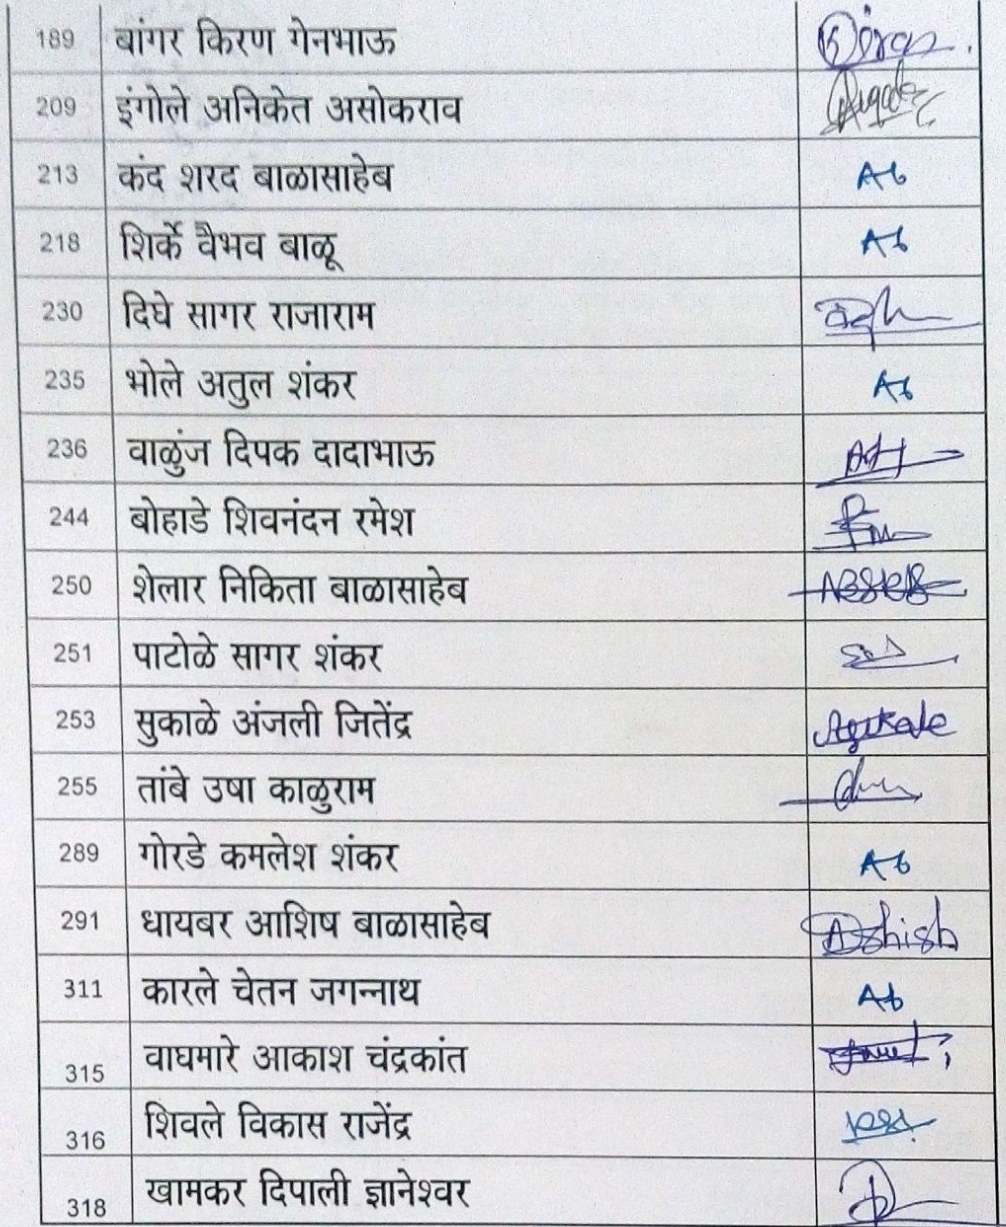 189 बांगर किरण गेनभाऊ
209 इंगोले अनिकेत असोकराव
213 कंद शरद बाळासाहेब Ab
218 शिर्के वैभव बाळू Ab
230 दिघे सागर राजाराम
235 भोले अतुल शंकर Ab
236 वाळुंज दिपक दादाभाऊ
244 बोहाडे शिवनंदन रमेश
250 शेलार निकिता बाळासाहेब
251 पाटोळे सागर शंकर
253 सुकाळे अंजली जितेंद्र
255 तांबे उषा काळुराम
289 गोरडे कमलेश शंकर Ab
291 धायबर आशिष बाळासाहेब Ashish
311 कारले चेतन जगन्नाथ Ab
315 वाघमारे आकाश चंद्रकांत
316 शिवले विकास राजेंद्र
318 खामकर दिपाली ज्ञानेश्वर